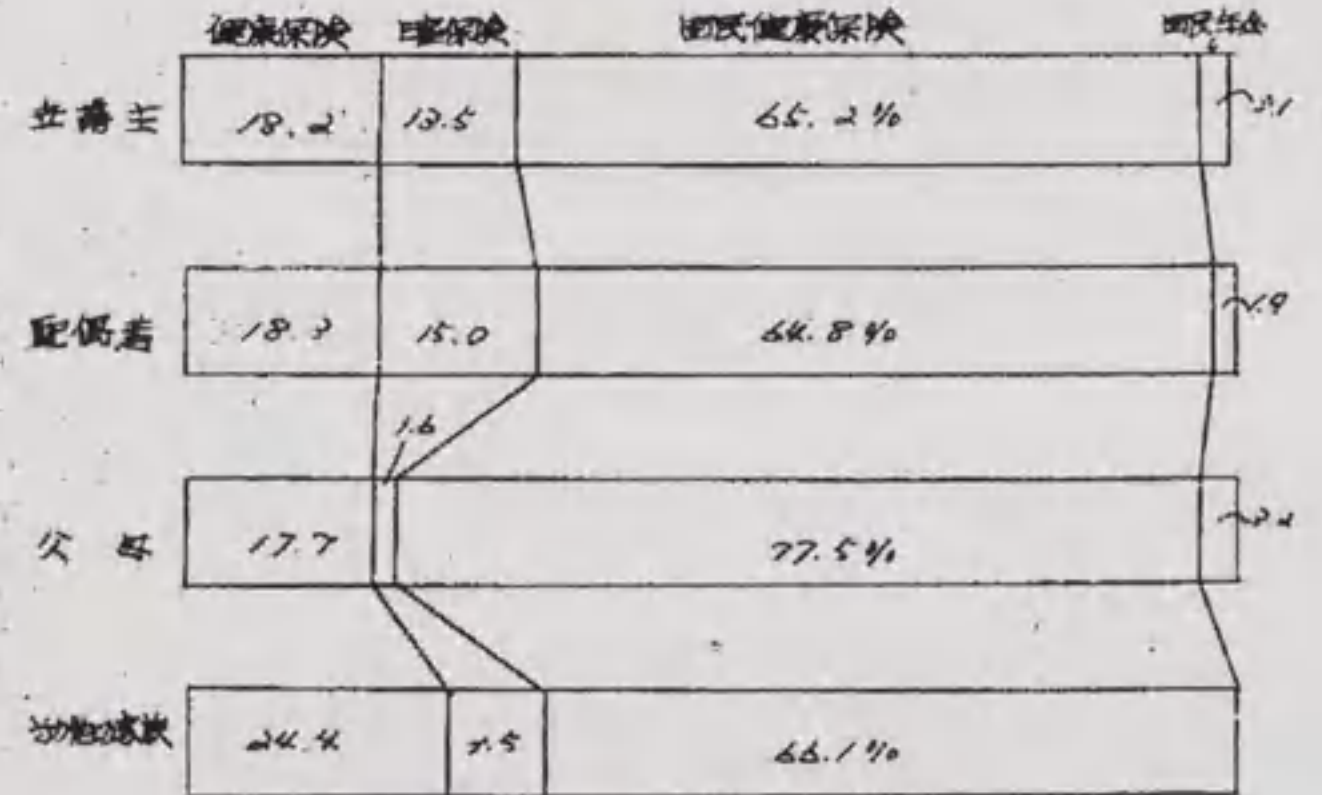 健康保険 日雇保険 国民健康保険 国民年金
世帯主 18.2 13.5 65.2% 3.1
配偶者 18.3 15.0 64.8% 1.9
1.6
父母 17.7 77.5% 3.2
その他の家族 24.4 66.1%